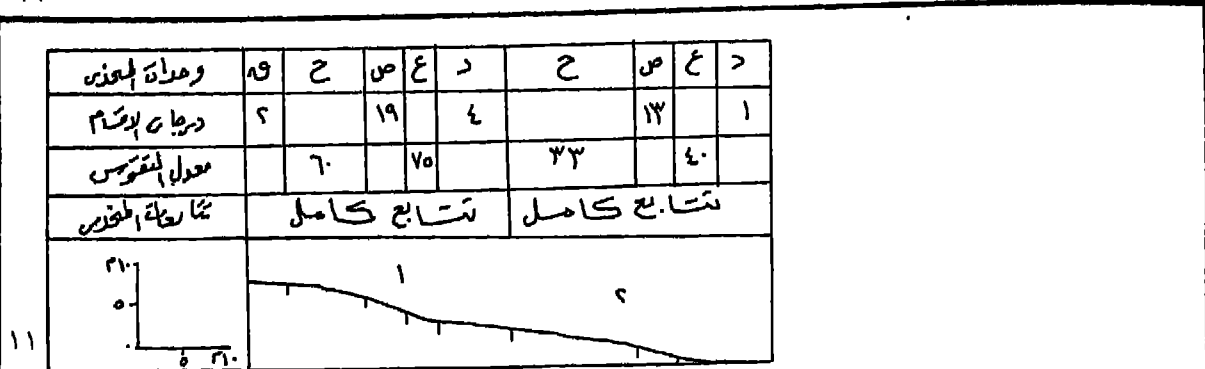 وحدات المنحدر ق ح ص ع د ح ص ع د
درجات الاقسام ٢ ١٩ ٤ ١٣ ١
معدل التقوس ٦٠ ٧٥ ٣٣ ٤٠
تتابعات المنحدر تتابع كامل تتابع كامل
١٠م
٥
٠
٥ ١٠م
١
٢
١١